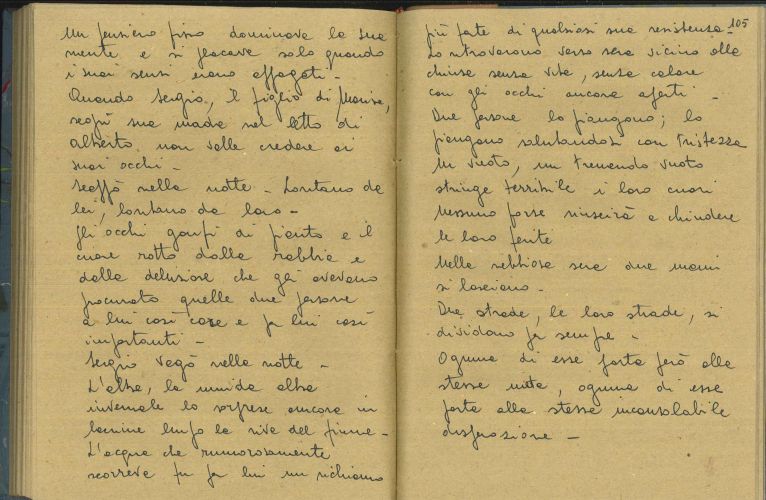 Un pensiero fisso dominava la sua
mente e si placava solo quando
i suoi sensi erano appagati -
Quando Sergio, il figlio di Marisa,
scoprì sua madre nel letto di
Alberto non volle credere ai
suoi occhi -
Scappò nella notte - Lontano da
lei, lontano da loro -
Gli occhi gonfi di pianto e il
cuore rotto dalla rabbia e
dalla delusione che gli avevano
procurato quelle due persone
a lui così care e per lui così
importanti -
Sergio vagò nella notte -
L'alba, la umida alba
invernale lo sorprese ancora in
cammino lungo la riva del fiume -
L'acqua che rumorosamente
scorreva fu per lui un richiamo
105
più forte di qualsiasi sua resistenza -
Lo ritrovarono verso sera vicino alla
chiusa senza vita, senza calore
con gli occhi ancora aperti -
Due persone lo piangono; lo
piangono salutandosi con tristezza
Un vuoto, un tremendo vuoto
stringe terribile i loro cuori
Nessuno forse riuscirà a chiudere
le loro ferite
Nella nebbiosa sera due mani
si lasciano -
Due strade, le loro strade, si
dividono per sempre -
Ognuna di esse porta però alla
stessa meta, ognuna di esse
porta alla stessa inconsolabile
disperazione -